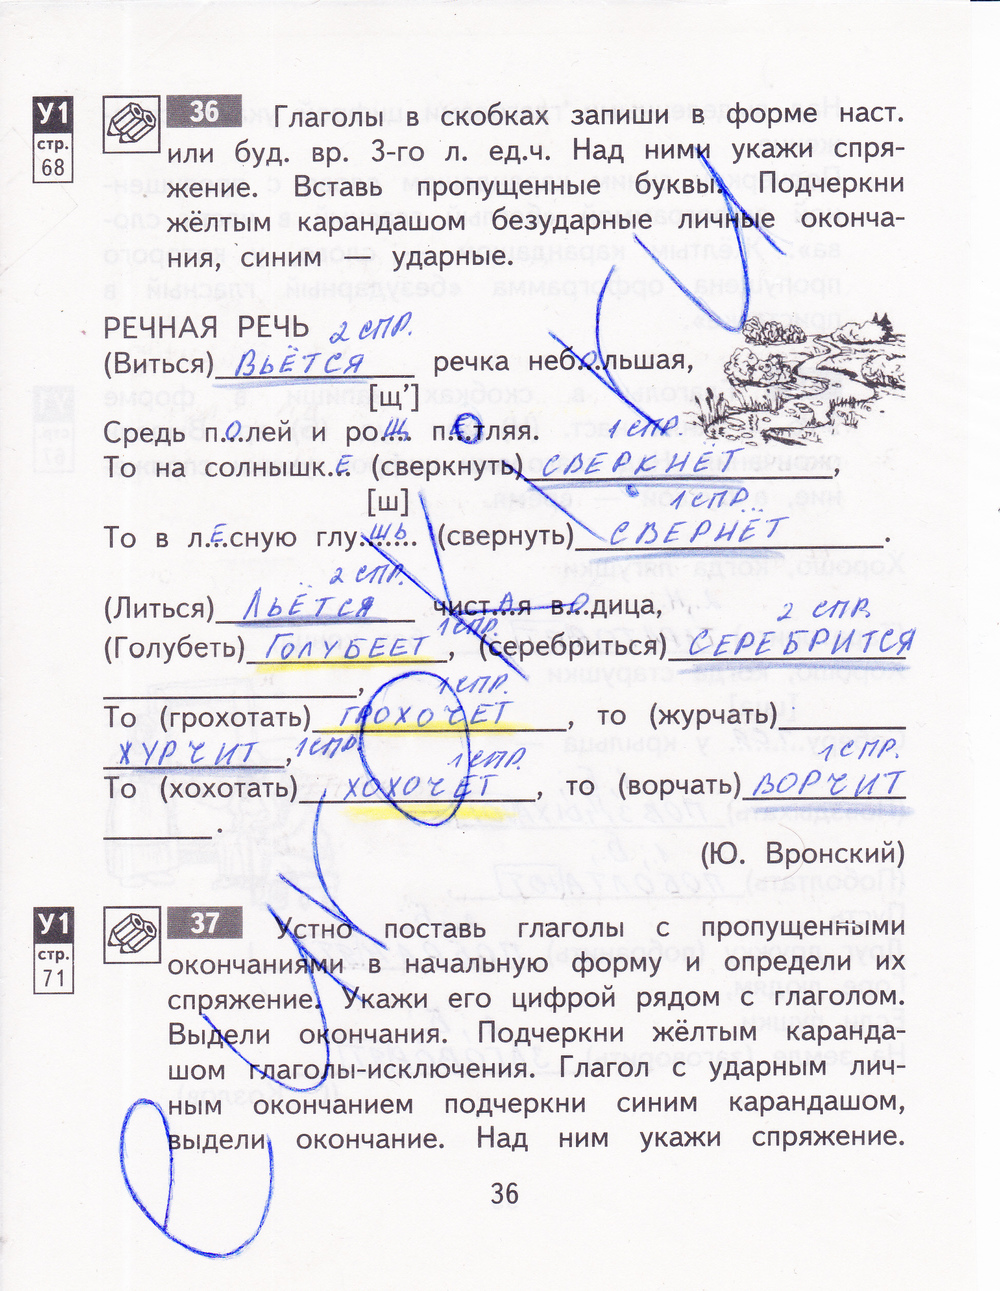 У1
стр.
68
36 Глаголы в скобках запиши в форме наст.
или буд. вр. 3-го л. ед.ч. Над ними укажи спря-
жение. Вставь пропущенные буквы. Подчеркни
жёлтым карандашом безударные личные оконча-
ния, синим — ударные.
РЕЧНАЯ РЕЧЬ 2 СПР.
(Виться) ВЬЁТСЯ речка неб.о.льшая,
[ш']
Средь п.О.лей и ро.Щ. п.Е.тляя. 1 СПР.
То на солнышк.Е (сверкнуть) СВЕРКНЕТ,
[ш] 1 СПР.
То в л.Е.сную глу.ШЬ... (свернуть) СВЕРНЁТ.
2 СПР.
(Литься) ЛЬЁТСЯ чист.А.я в.О.дица,
1 СПР. 2 СПР.
(Голубеть) ГОЛУБЕЕТ, (серебриться) СЕРЕБРИТСЯ
, 1 СПР.
То (грохотать) ГРОХОЧЕТ, то (журчать)
ЖУРЧИТ, 1 СПР. 1 СПР. 1 СПР.
То (хохотать) ХОХОЧЕТ, то (ворчать) ВОРЧИТ
.
(Ю. Вронский)
У1
стр.
71
37 Устно поставь глаголы с пропущенными
окончаниями в начальную форму и определи их
спряжение. Укажи его цифрой рядом с глаголом.
Выдели окончания. Подчеркни жёлтым каранда-
шом глаголы-исключения. Глагол с ударным лич-
ным окончанием подчеркни синим карандашом,
выдели окончание. Над ним укажи спряжение.
36